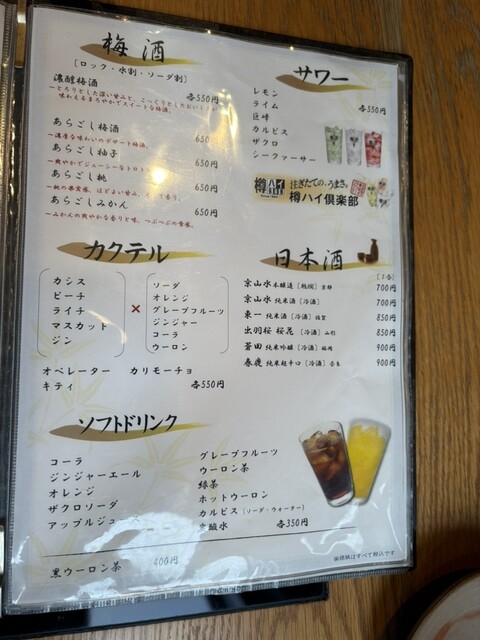 梅酒
［ロック・水割・ソーダ割］
濃醇梅酒 各550円
～とろりとした深い甘みと、こっくりとした
味わえるまろやかでスイートな梅酒。
あらごし梅酒 650
～濃厚な味わいのデザート梅酒。
あらごし柚子 650
～爽やかでジューシーな
あらごし桃 650円
～桃の果実感、ほどよい甘み、香り。
あらごしみかん 650円
～みかんの爽やかな香りと味、つぶつぶの食感。
サワー
レモン
ライム 各350円
巨峰
カルピス
ザクロ
シークァーサー
樽ハイ 注ぎたての、うまさ。
樽ハイ倶楽部
カクテル
カシス
ピーチ
ライチ
マスカット
ジン
×
ソーダ
オレンジ
グレープフルーツ
ジンジャー
コーラ
ウーロン
オペレーター カリモーチョ
キティ 各550円
日本酒
［1合］
京山水 本醸造［熱燗］京都 700円
京山水 純米酒［冷酒］ 700円
東一 純米酒［冷酒］佐賀 850円
出羽桜 桜花［冷酒］山形 850円
蒼田 純米吟醸［冷酒］福岡 900円
春鹿 純米超辛口［冷酒］奈良 900円
ソフトドリンク
コーラ
ジンジャーエール
オレンジ
ザクロソーダ
アップルジュ
グレープフルーツ
ウーロン茶
緑茶
ホットウーロン
カルピス（ソーダ・ウォーター）
炭酸水 各350円
黒ウーロン茶 400円
※価格はすべて税込です